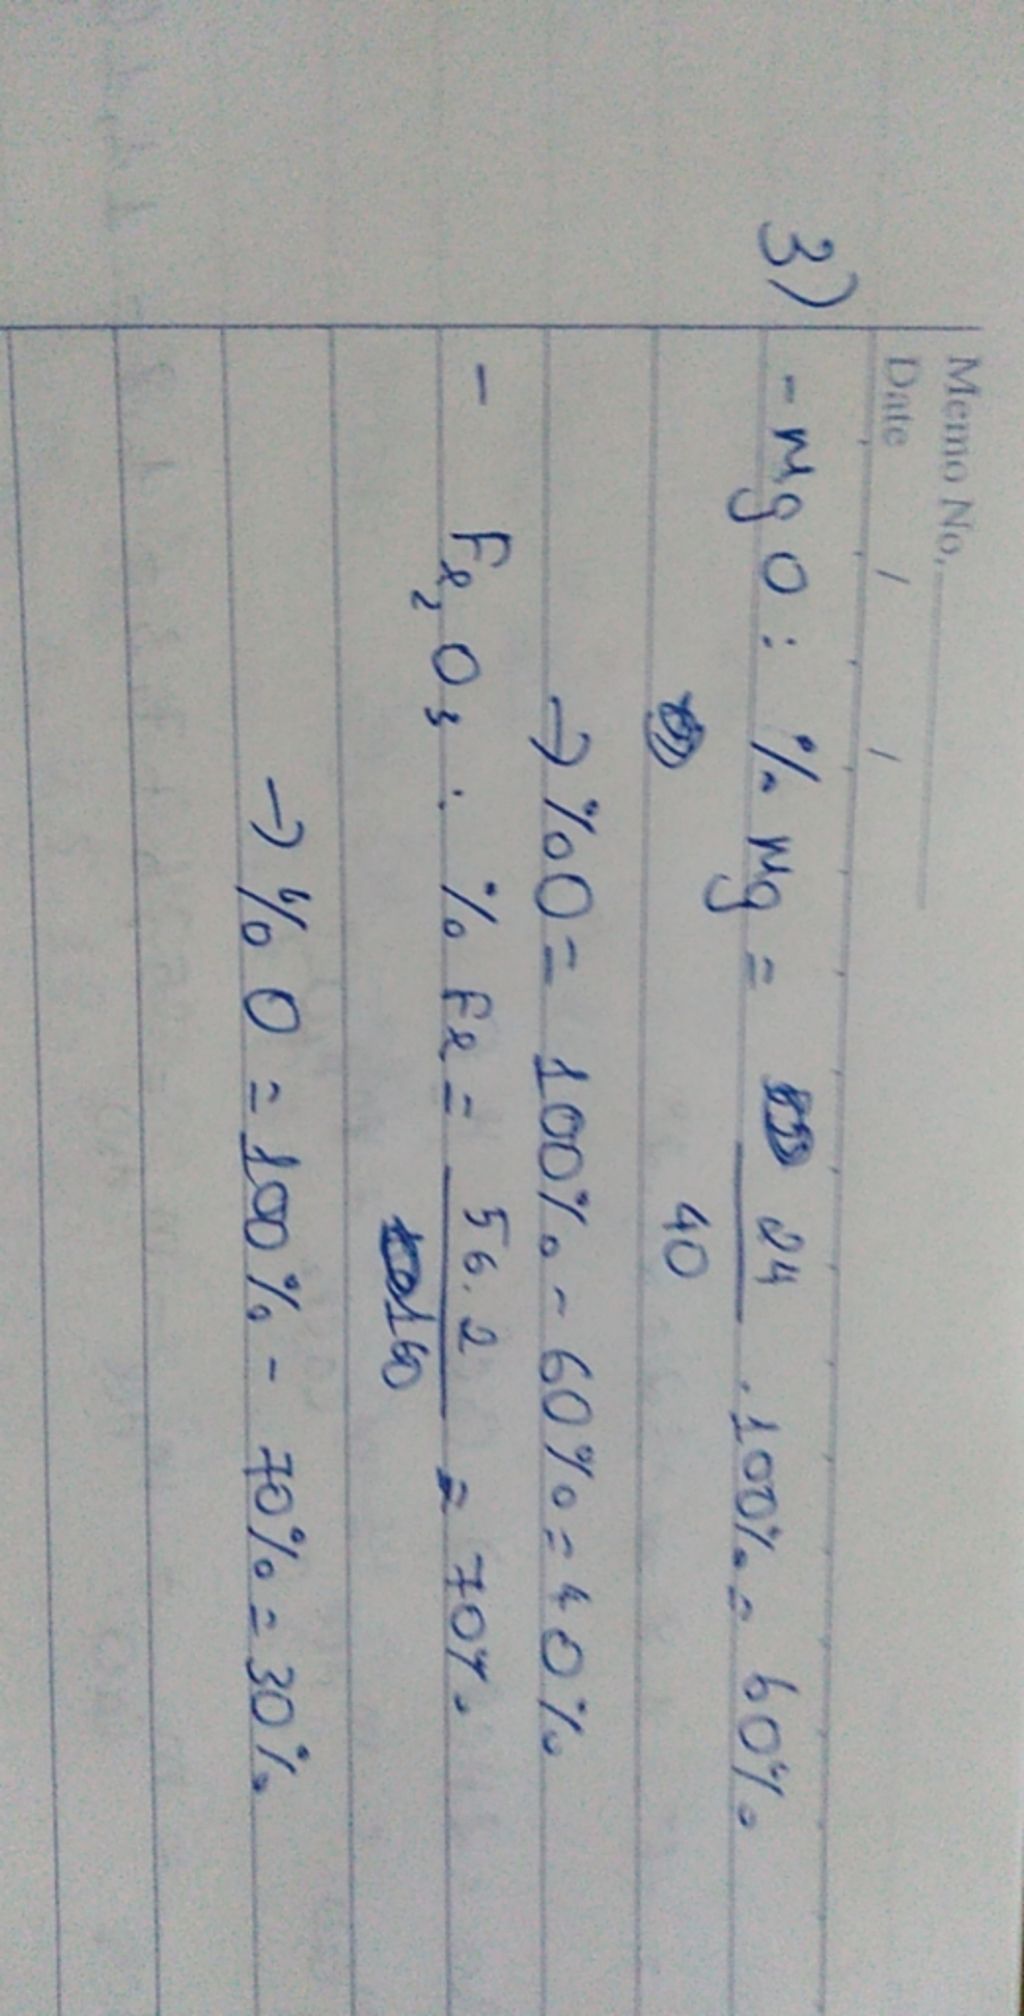 Memo No.
Date / /
3) - MgO : % Mg = 24/40 . 100% = 60%
→ %O = 100% - 60% = 40%
- Fe₂O₃ : % Fe = 56.2/160 = 70%
→ % O = 100% - 70% = 30%